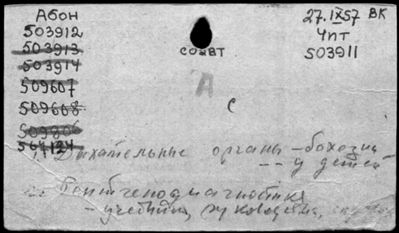 Абон
503912
503913
503914
509607
509608
509806
504124
соавт
А
с
27.IX57 ВК
Чпт
503911
Дыхательные органы –
-- у детей
Рентгенодиагностика
– учебники, руководства,